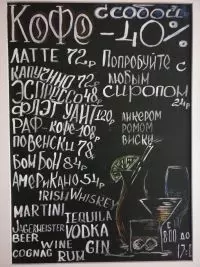 КОФЕ с собой -40%
ЛАТТЕ 72р
КАПУЧИНО 72р
ЭСПРЕССО 48р
ФЛЭТ УАЙТ 120р
РАФ-КОФЕ 108р
ПО ВЕНСКИ 78р
БОН БОН 84р
АМЕРИКАНО 54р
Попробуйте с
любым
сиропом
24р
ликером
ромом
виски
IRISH WHISKEY
MARTINI
TEQUILA
JÄGERMEISTER
VODKA
BEER
WINE
GIN
COGNAG
RUM
8:00 до